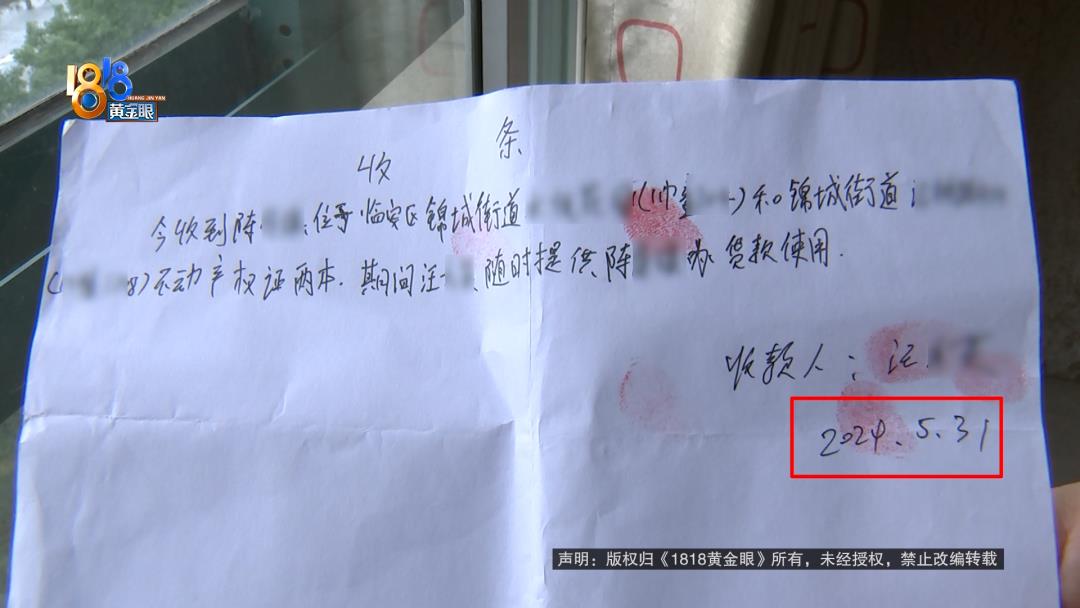 1818
HUANG JIN YAN
黄金眼
收 条
今收到陈 位于临安区锦城街道 和锦城街道
不动产权证两本.期间汪 随时提供陈 办贷款使用.
收款人:汪
2024.5.31
声明:版权归《1818黄金眼》所有,未经授权,禁止改编转载